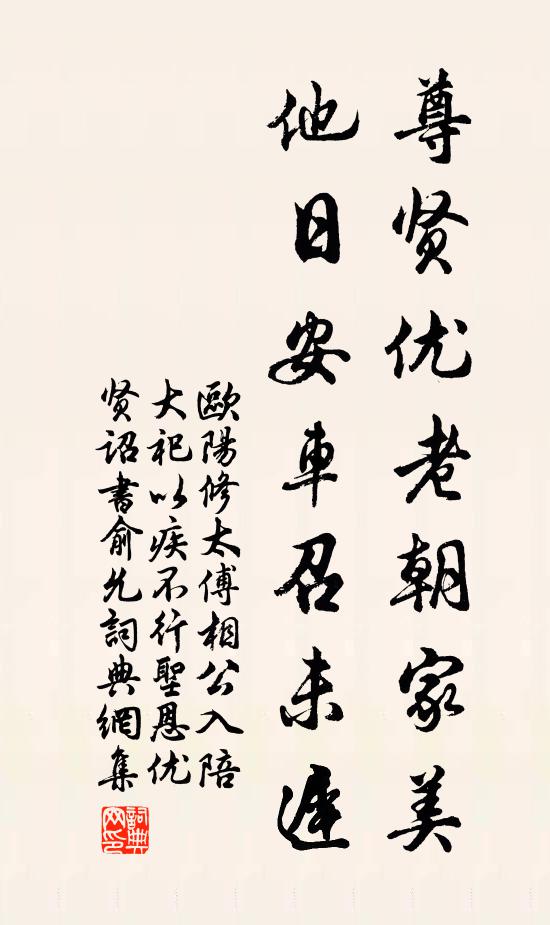 尊贤优老朝家美
他日安車召未遲
歐陽修太傅相公入陪
大祀以疾不行聖恩优
贤诏書俞允詞典網集
詞典网印